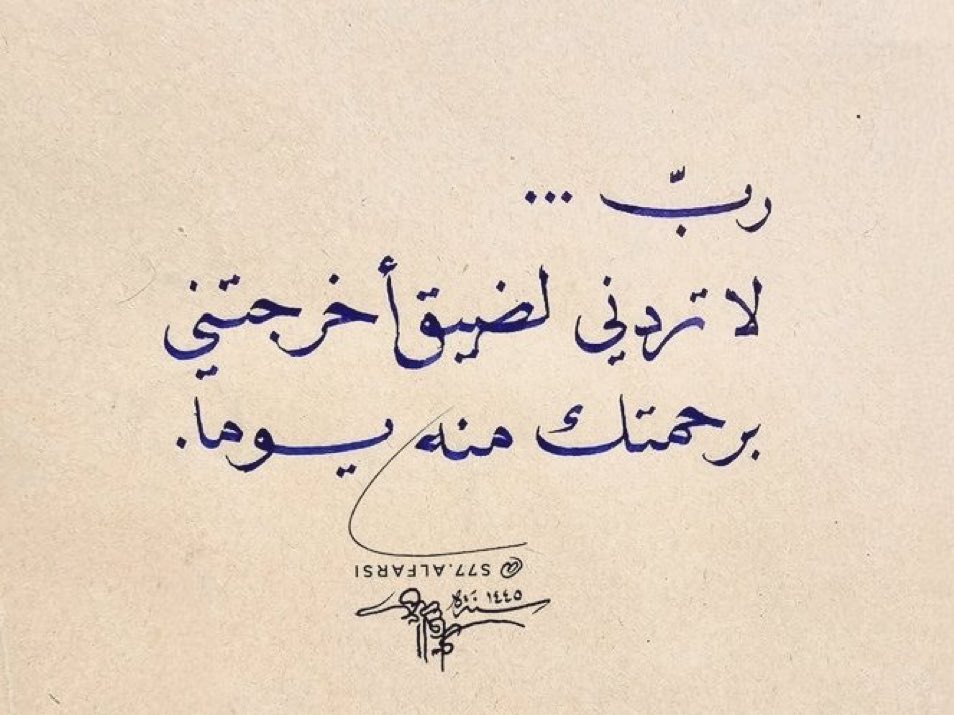 ربّ ...
لا تردني لضيق أخرجتني
برحمتك منه يوما.
@ S77.ALFARSI